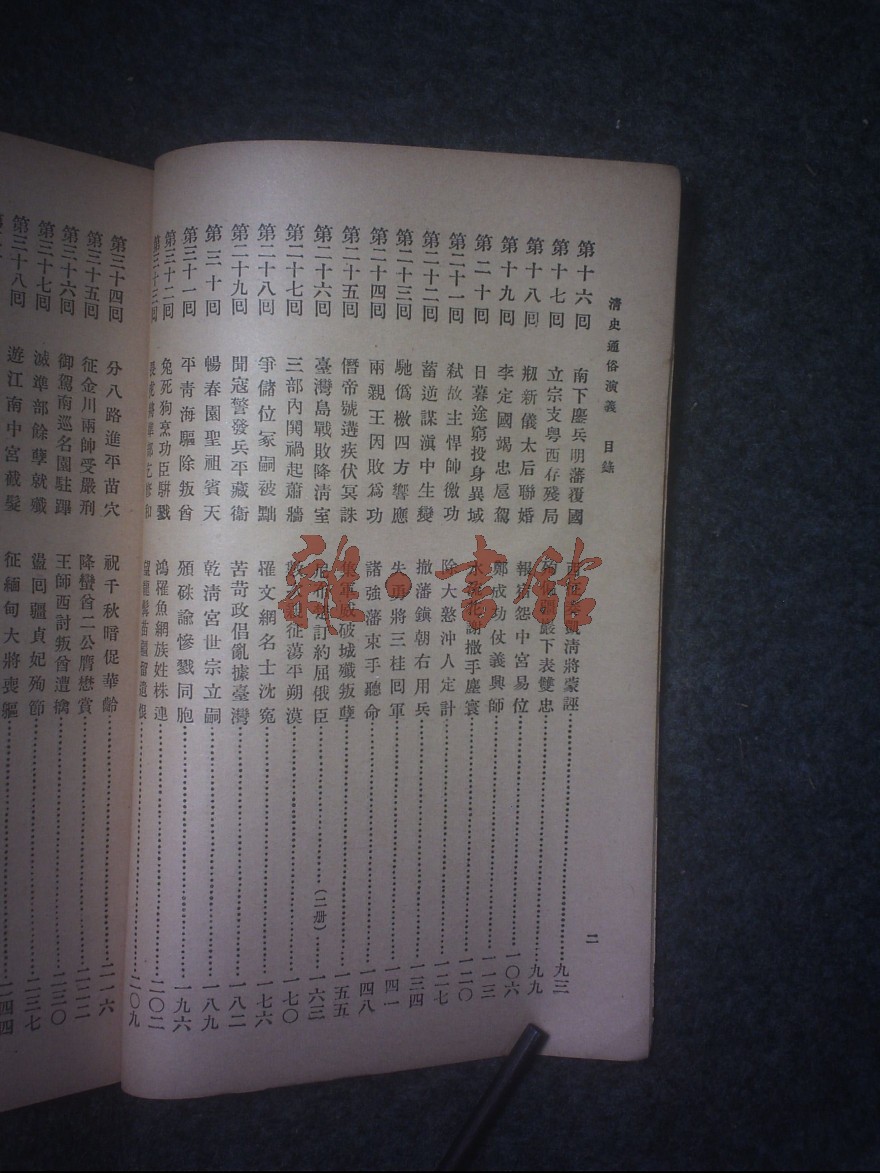 清史通俗演義 目錄
二
第十六回 南下鏖兵明藩覆國 清將蒙誣 九三
第十七回 立宗支粵西存殘局 嚴下表雙忠 九九
第十八回 覣新儀太后聯婚 報宿怨中宮易位 一〇六
第十九回 李定國竭忠扈駕 鄭成功仗義興師 一一三
第二十回 日暮途窮投身異域 撒手塵寰 一二〇
第二十一回 弒故主悍帥徼功 除大憝沖人定計 一二七
第二十二回 蓄逆謀滇中生變 撤藩鎭朝右用兵 一三四
第二十三回 馳僞檄四方響應 失勇將三桂回軍 一四一
第二十四回 兩親王因敗爲功 諸強藩束手聽命 一四八
第二十五回 僭帝號遘疾伏冥誅 軍威破城殲叛孽 一五五
第二十六回 臺灣島戰敗降淸室 訂約屈俄臣 (二册) 一六三
第二十七回 三部內鬨禍起蕭牆 征蕩平朔漠 一七〇
第二十八回 爭儲位冢嗣被黜 罹文網名士沈冤 一七六
第二十九回 聞寇警發兵平藏衞 苦苛政倡亂據臺灣 一八二
第三十回 暢春園聖祖賓天 乾淸宮世宗立嗣 一八九
第三十一回 平青海驅除叛酋 頒硃諭慘戮同胞 一九六
第三十二回 兔死狗烹功臣騈戮 鴻罹魚網族姓株連 二〇二
第三十三回 二〇九
第三十四回 分八路進平苗穴 祝千秋暗促華齡 二一六
第三十五回 征金川兩帥受嚴刑 降蠻酋二公膺懋賞 二二二
第三十六回 御駕南巡名園駐蹕 王師西討叛酋遭擒 二三〇
第三十七回 滅準部餘孽就殲 盪回疆貞妃殉節 二三七
第三十八回 遊江南中宮截髮 征緬甸大將喪軀 二四四
雜·書館